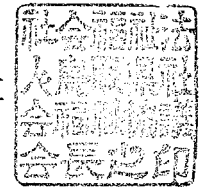 社会福祉法
人社
会福祉協議
会長之印